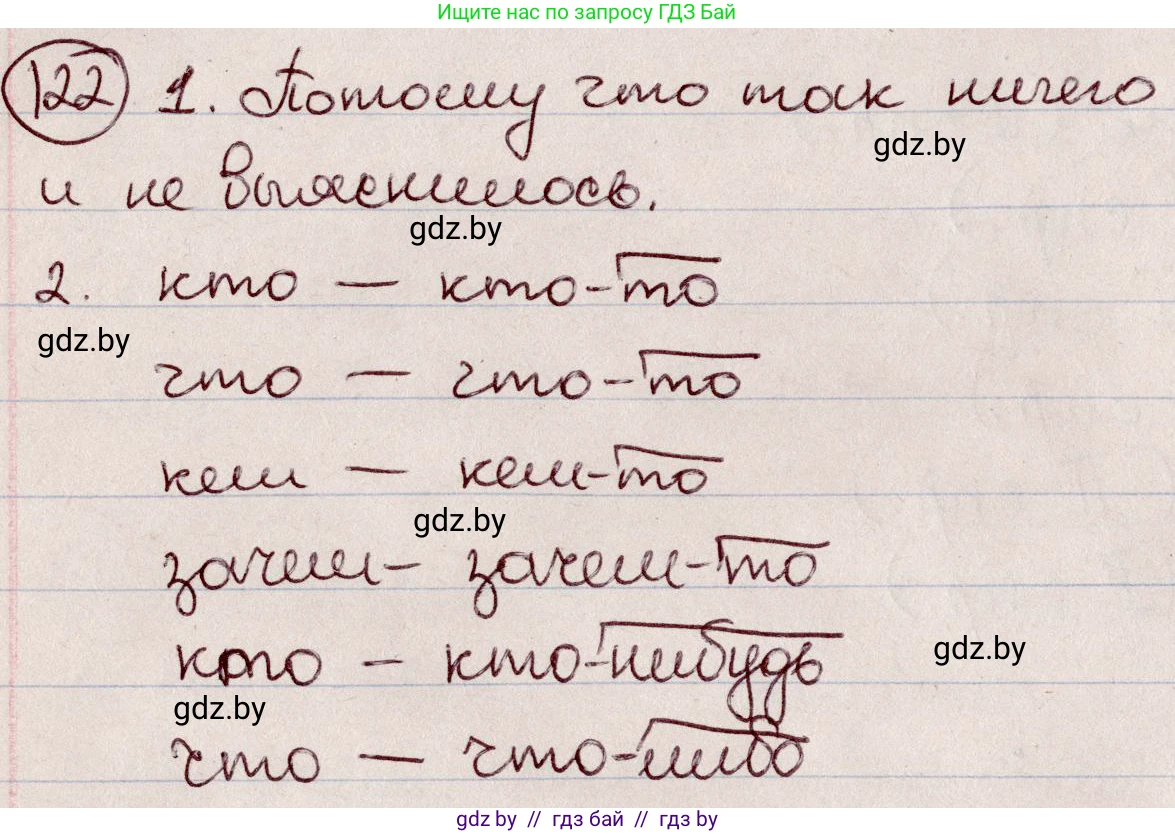 Ищите нас по запросу ГДЗ Бай
122 1. Потому что так ничего
gdz.by
и не выяснилось.
gdz.by
2. кто — кто-то
gdz.by
что — что-то
кем — кем-то
gdz.by
зачем — зачем-то
кто — кто-нибудь
gdz.by
gdz.by
что — что-либо
gdz.by // гдз бай // гдз by